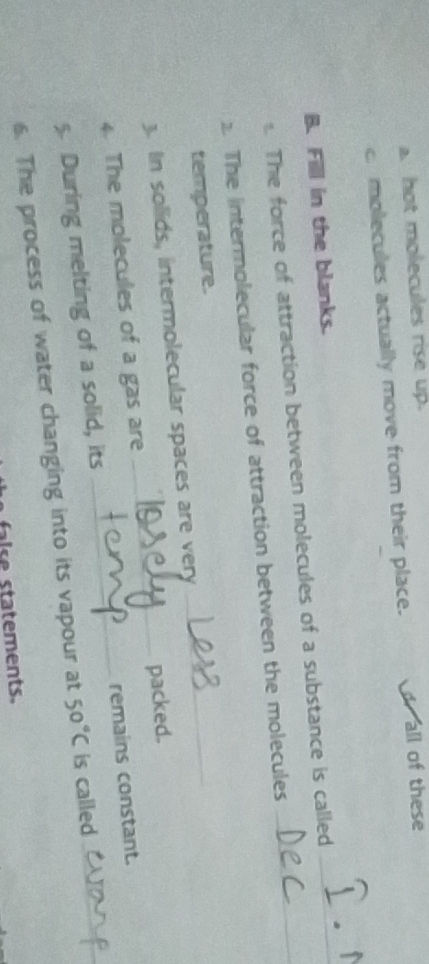 a. hot molecules rise up.
c. molecules actually move from their place. all of these
B. Fill in the blanks.
1. The force of attraction between molecules of a substance is called I.
2. The intermolecular force of attraction between the molecules Dec
temperature.
3. In solids, intermolecular spaces are very Less
4. The molecules of a gas are losely packed.
5. During melting of a solid, its temp remains constant.
6. The process of water changing into its vapour at 50°C is called
false statements.